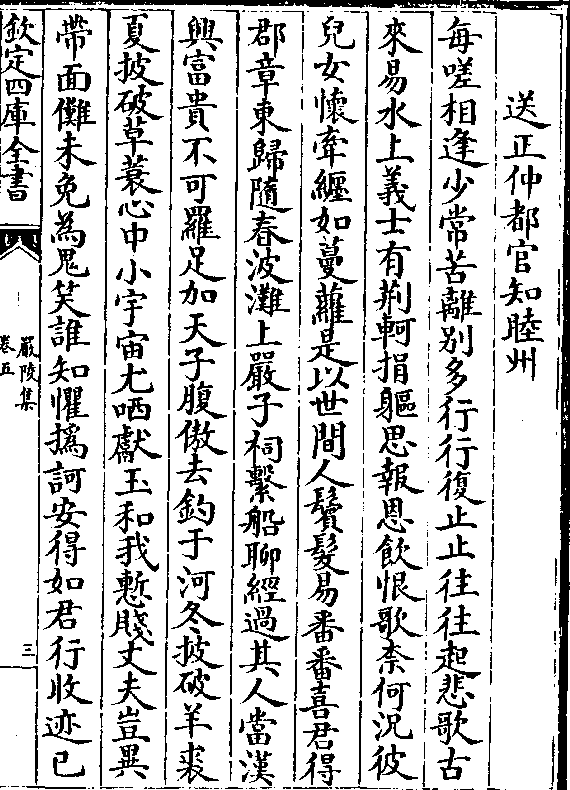 送正仲都官知睦州
每嗟相逢少常苦離别多行行復止止往往起悲歌古
來易水上義士有荆軻捐軀思報恩飲恨歌奈何況彼
兒女懷牽纏如蔓蘿是以世間人鬢髮易番番喜君得
郡章東歸隨春波灘上嚴子祠繫船聊經過其人當漢
興富貴不可羅足加天子腹傲去釣于河冬披破羊裘
夏披破草蓑心中小宇宙尤哂獻玉和我慙賤丈夫豈異
帶面儺未免為鬼笑誰知懼撝訶安得如君行收迹已
欽定四庫全書
嚴陵集
卷五
三